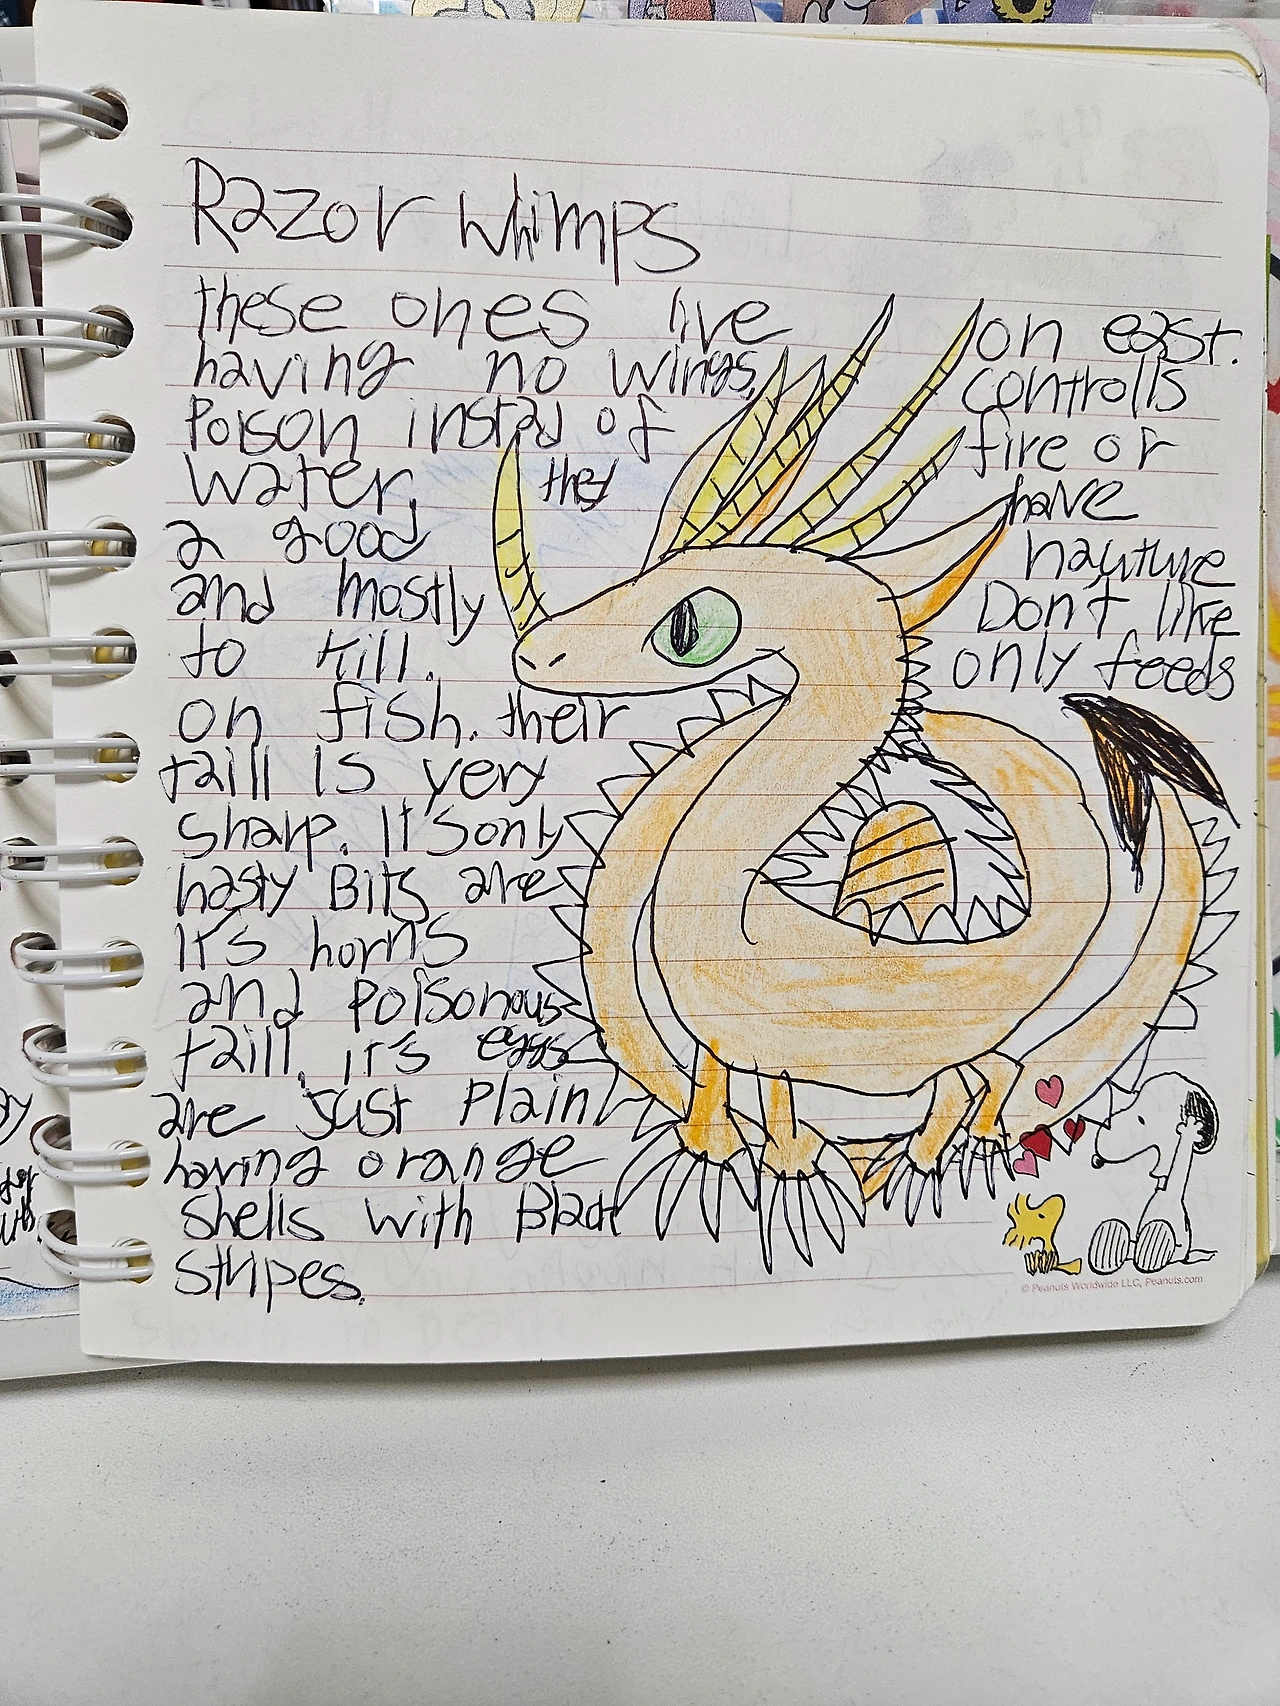 Razor Whimps
these ones live on east.
having no wings, controlls
Poison instad of fire or
water, they have
a good nauture
and mostly Don't like
to kill. only feeds
on fish. their
taill is very
sharp. It's only
nasty Bits are
It's horns
and Poisonous
taill. it's eggs
are just Plain
having orange
shells with Black
stripes.
© Peanuts Worldwide LLC, Peanuts.com